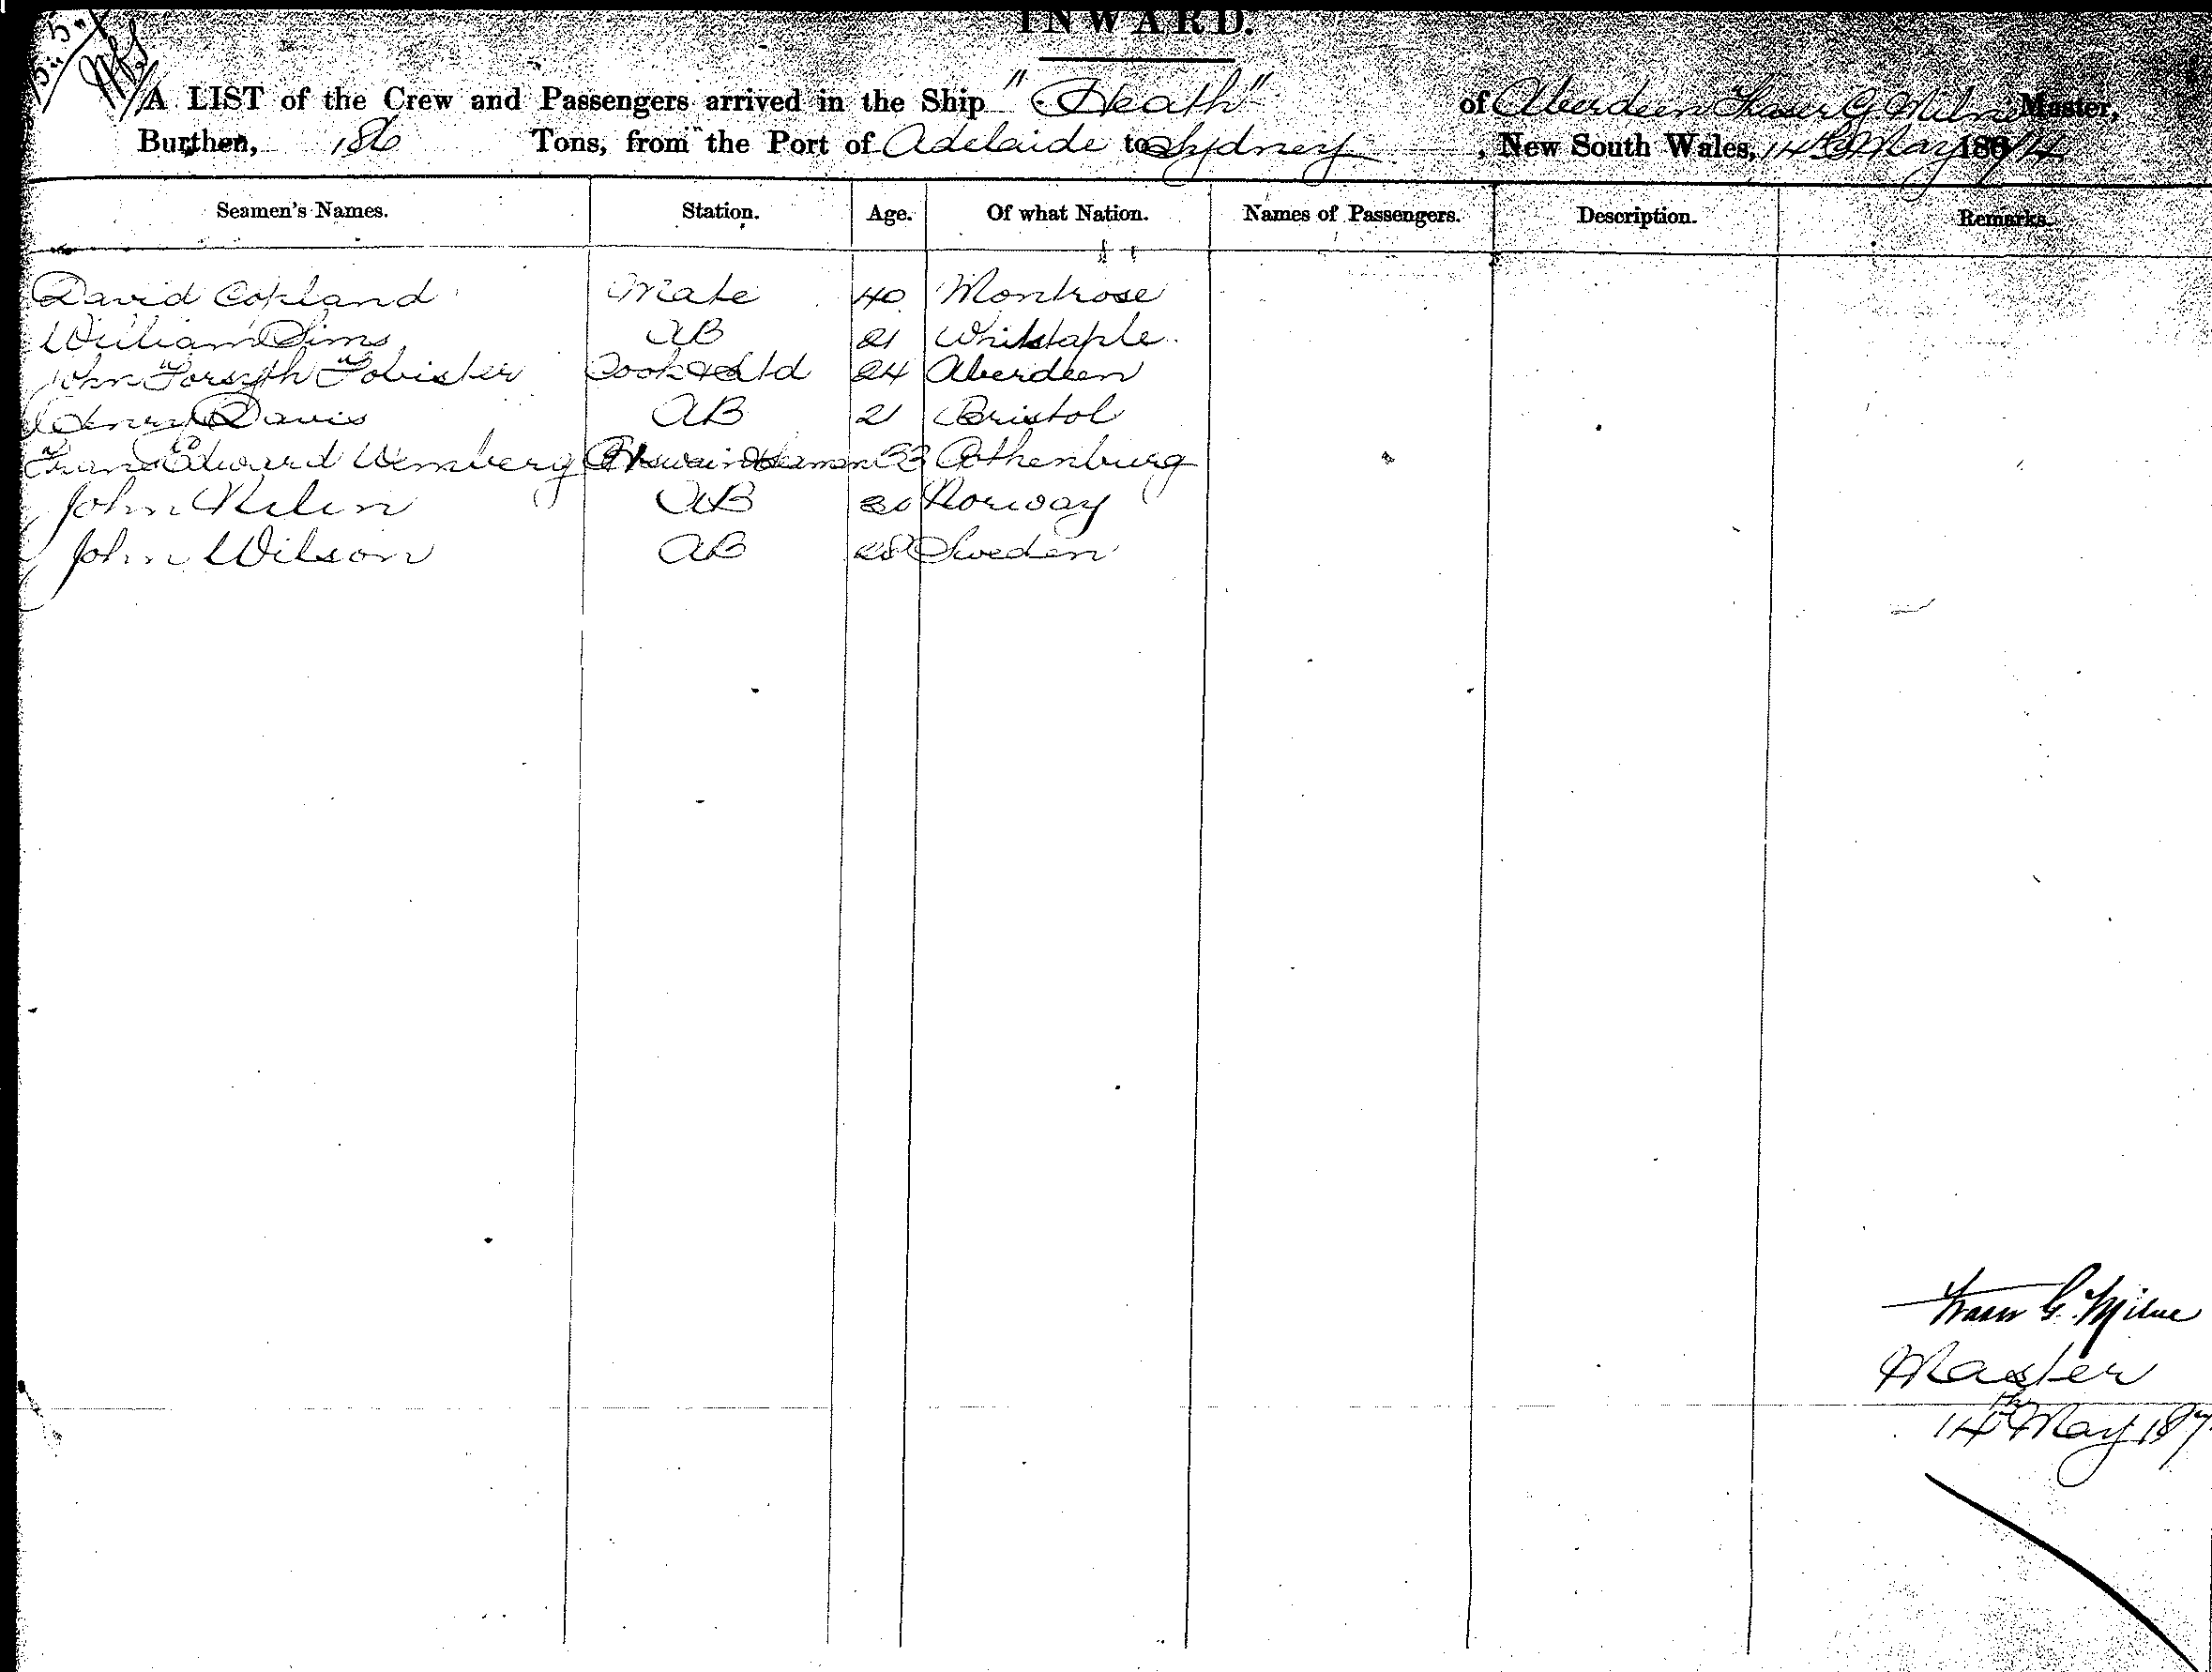 INWARD.
A LIST of the Crew and Passengers arrived in the Ship "Heath" of Aberdeen Fraser G. Milne Master,
Burthen, 186 Tons, from the Port of Adelaide to Sydney, New South Wales, 14th May 1874
Seamen's Names. Station. Age. Of what Nation. Names of Passengers. Description. Remarks.
David Copland Mate 40 Montrose
William Sims AB 21 Whitstaple
John Forsyth Fobister Cook & Std 24 Aberdeen
Henry Davis AB 21 Bristol
Edward Wemberg 33 Gothenburg
John AB 30 Norway
John Wilson AB 28 Sweden
Fraser G. Milne
Master
14th May 187